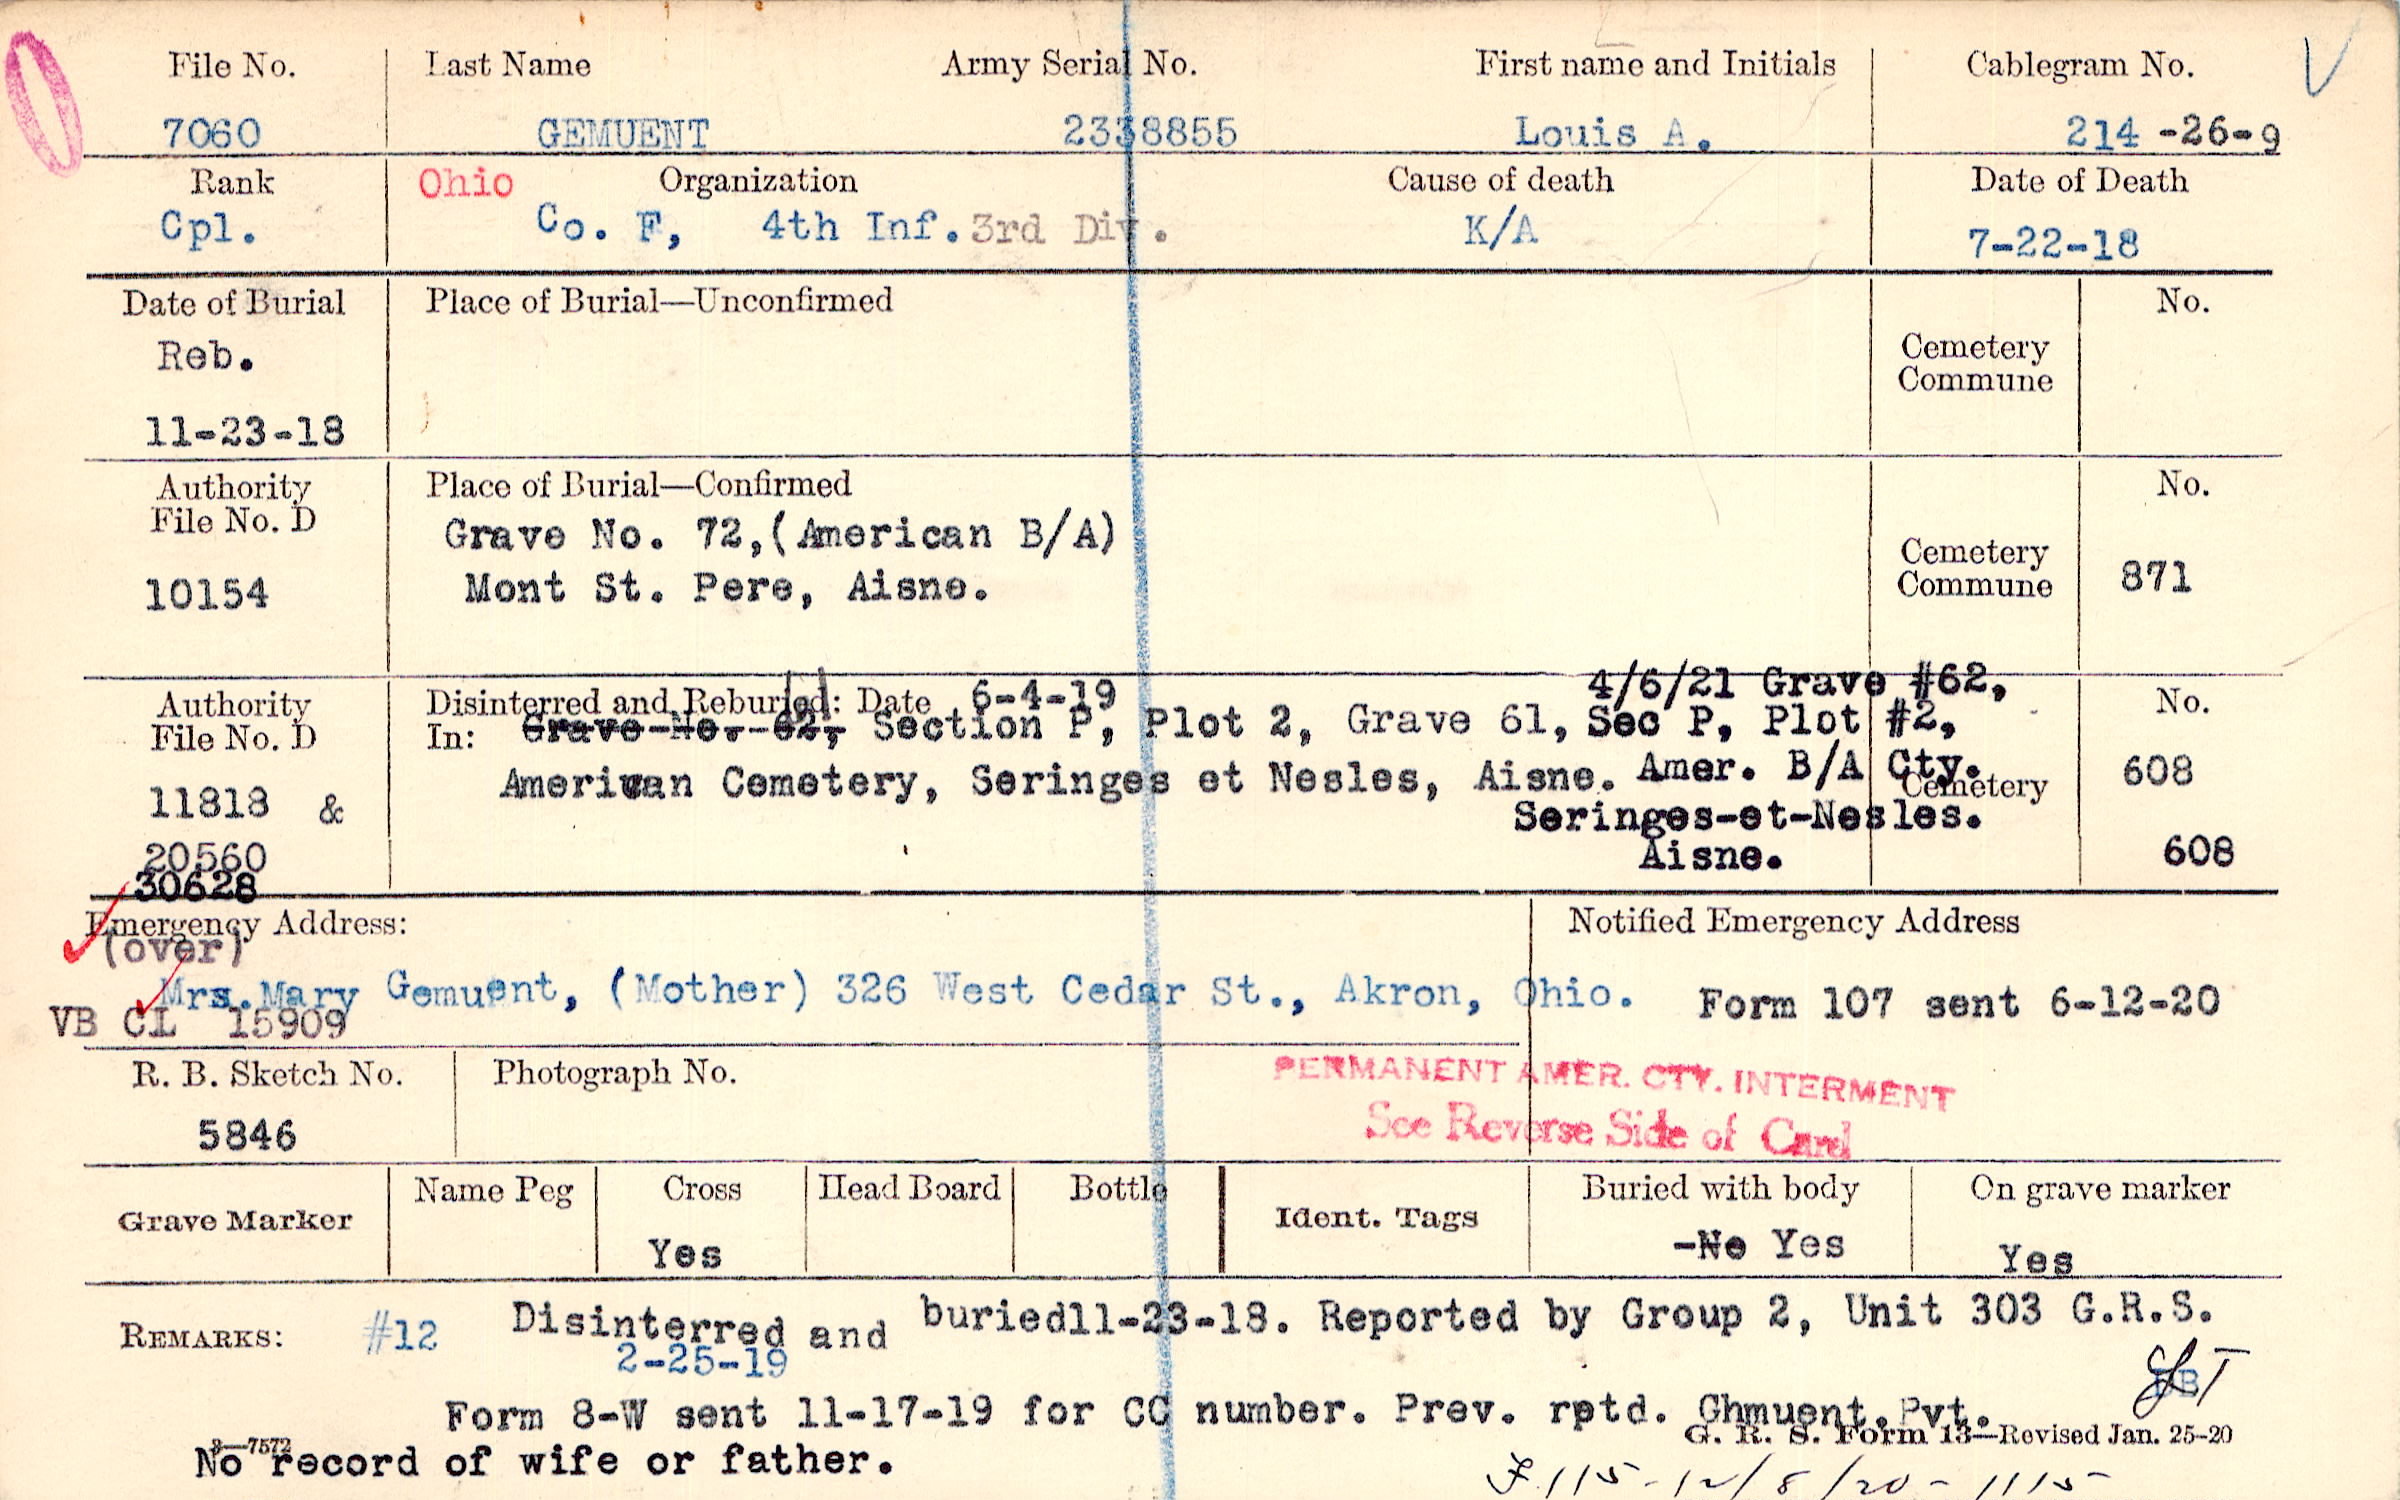 File No. Last Name Army Serial No. First name and Initials Cablegram No.
7060 GEMUENT 2338855 Louis A. 214 -26-9
Rank Ohio Organization Cause of death Date of Death
Cpl. Co. F, 4th Inf. 3rd Div. K/A 7-22-18
Date of Burial Place of Burial—Unconfirmed No.
Reb.
Cemetery
Commune
11-23-18
Authority Place of Burial—Confirmed No.
File No. D
Grave No. 72,(American B/A)
Cemetery
Commune
10154 Mont St. Pere, Aisne. 871
4/6/21 Grave #62,
Authority Disinterred and Reburied: Date 6-4-19 No.
File No. D In: Grave No. 62, Section P, Plot 2, Grave 61, Sec P, Plot #2,
American Cemetery, Seringes et Nesles, Aisne. Amer. B/A Cty. 608
Cemetery
11818 & Seringes-et-Nesles.
20560 Aisne. 608
30628
Emergency Address: Notified Emergency Address
(over)
Mrs. Mary Gemuent, (Mother) 326 West Cedar St., Akron, Ohio. Form 107 sent 6-12-20
VB CL 15909
R. B. Sketch No. Photograph No. PERMANENT AMER. CTY. INTERMENT
5846 See Reverse Side of Card
Grave Marker Name Peg Cross Head Board Bottle Ident. Tags Buried with body On grave marker
Yes -No Yes Yes
REMARKS: #12 Disinterred and buried11-23-18. Reported by Group 2, Unit 303 G.R.S.
2-25-19
Form 8-W sent 11-17-19 for CC number. Prev. rptd. Ghmuent, Pvt.
3—7572 G. R. S. Form 13—Revised Jan. 25-20
No record of wife or father.
F.115-12/8/20-1115